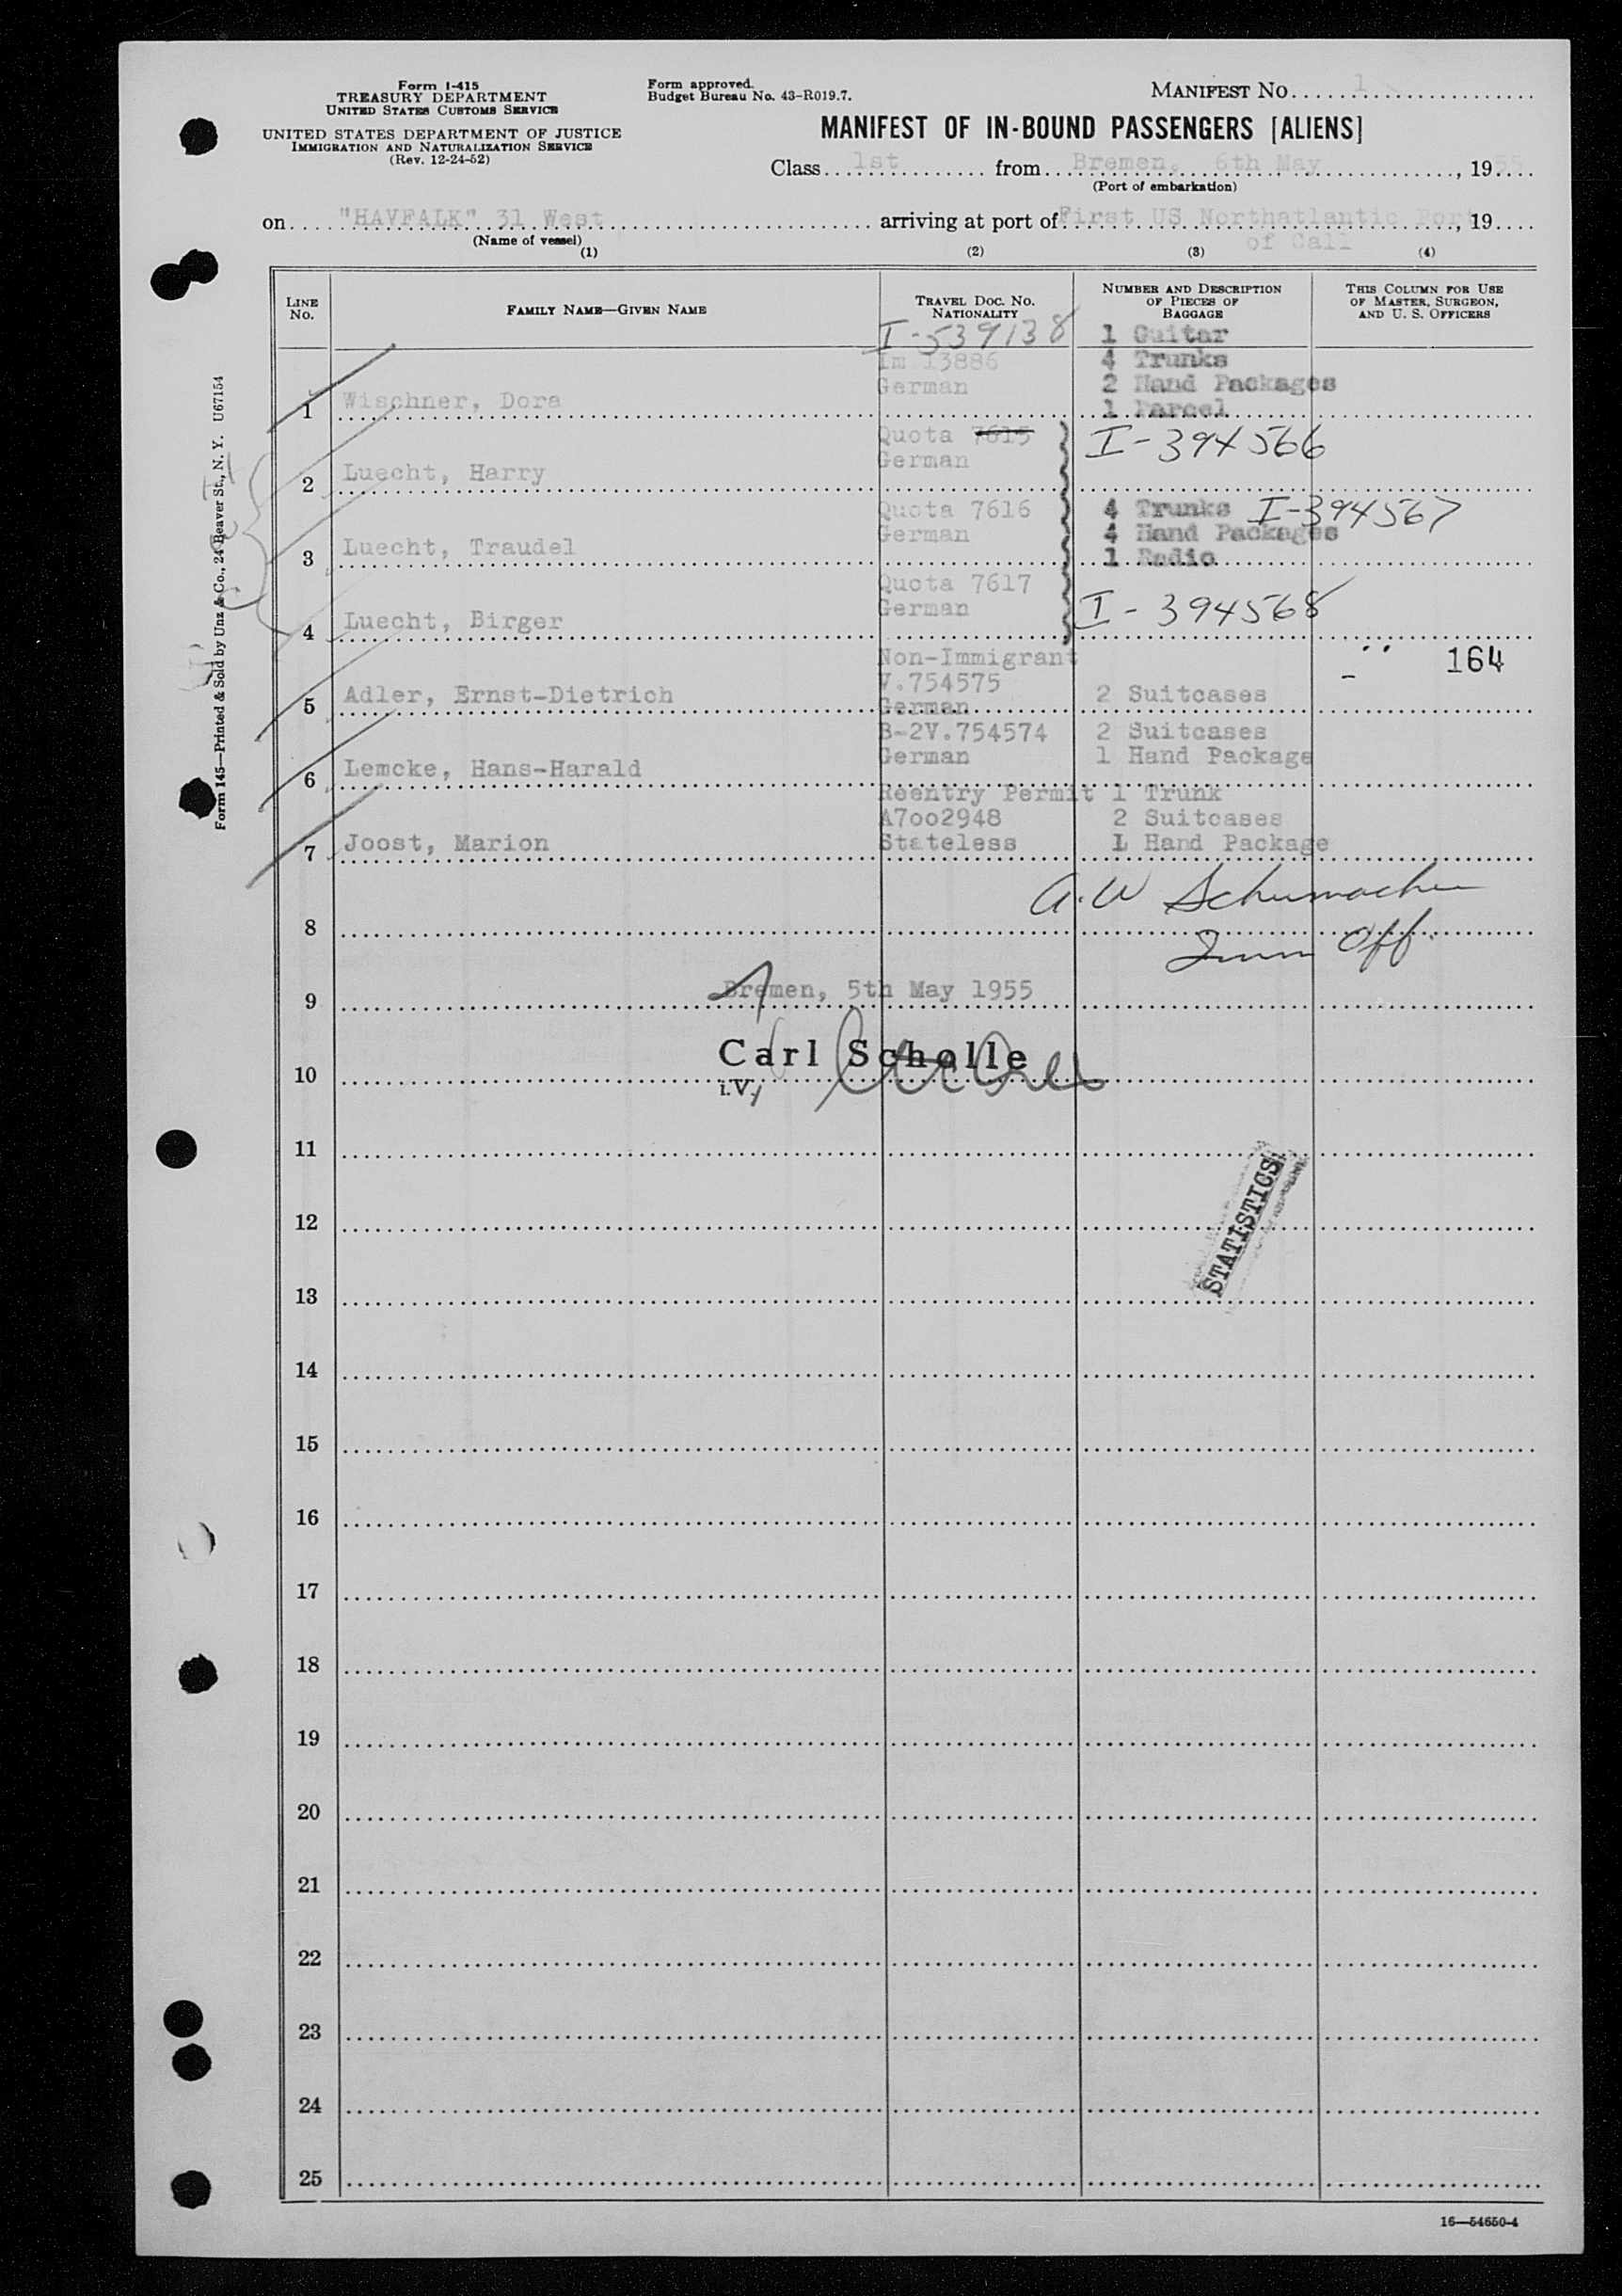 Form I-415
TREASURY DEPARTMENT
UNITED STATES CUSTOMS SERVICE
UNITED STATES DEPARTMENT OF JUSTICE
IMMIGRATION AND NATURALIZATION SERVICE
(Rev. 12-24-52)
Form approved.
Budget Bureau No. 43-R019.7.
MANIFEST NO. 1
MANIFEST OF IN-BOUND PASSENGERS [ALIENS]
Class 1st from Bremen, 6th May, 1955
(Port of embarkation)
on "HAVFALK" 31 West arriving at port of First US Northatlantic Port, 19
of Call
(Name of vessel)
(1) (2) (3) (4)
LINE NO.
FAMILY NAME—GIVEN NAME
TRAVEL DOC. NO. NATIONALITY
NUMBER AND DESCRIPTION OF PIECES OF BAGGAGE
THIS COLUMN FOR USE OF MASTER, SURGEON, AND U. S. OFFICERS
I-539138 1 Guitar
Im 13886 4 Trunks
German 2 Hand Packages
1 Wischner, Dora 1 Parcel
Quota 7615 I-394566
German
2 Luecht, Harry
Quota 7616 4 Trunks I-394567
German 4 Hand Packages
3 Luecht, Traudel 1 Radio
Quota 7617
German I-394568
4 Luecht, Birger
Non-Immigrant 164
V.754575
5 Adler, Ernst-Dietrich German 2 Suitcases
B-2V.754574 2 Suitcases
German 1 Hand Package
6 Lemcke, Hans-Harald
Reentry Permit 1 Trunk
A7oo2948 2 Suitcases
7 Joost, Marion Stateless 1 Hand Package
A.W Schumacher
8
Imm Off.
9 Bremen, 5th May 1955
Carl Scholle
10
i.V.
11
STATISTICS
12
13
14
15
16
17
18
19
20
21
22
23
24
25
16—54650-4
Form 145—Printed & Sold by Unz & Co., 24 Beaver St., N. Y. U67154